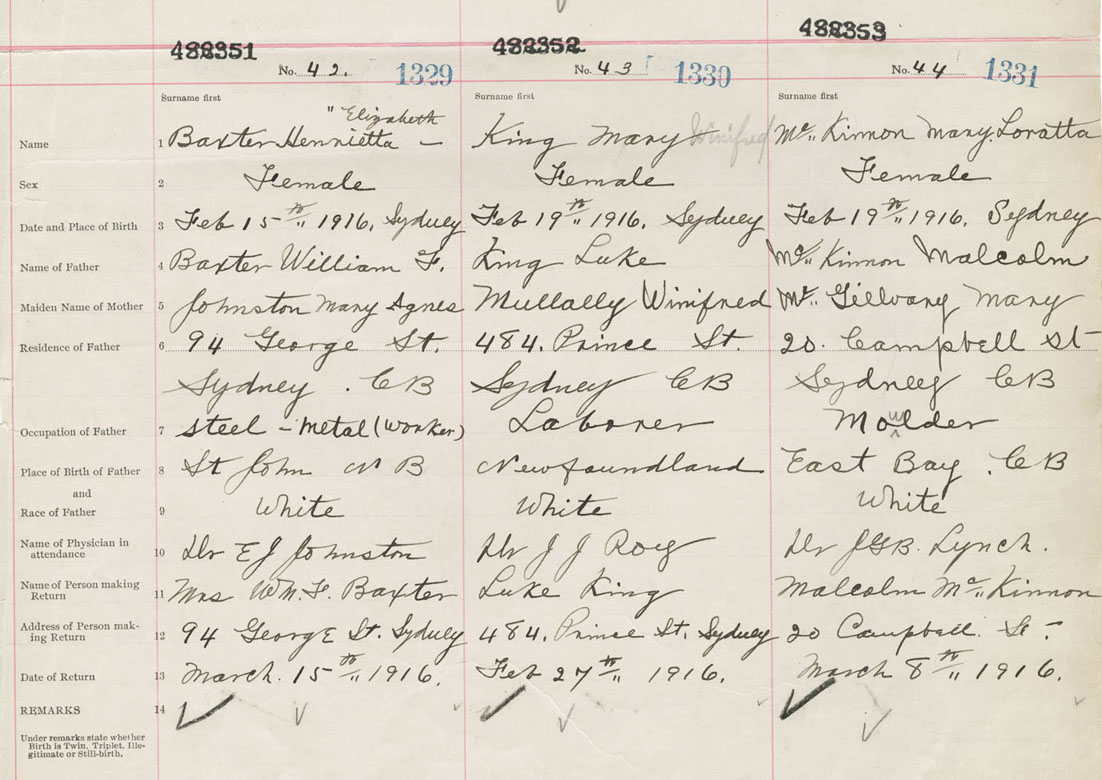 488351 488352 488353
No. 42. 1329 No. 43 1330 No. 44 1331
Surname first Surname first Surname first
" Elizabeth
Name 1 Baxter Henrietta — King Mary Winifred Mc Kinnon Mary Loratta
Sex 2 Female Female Female
Date and Place of Birth 3 Feb 15th 1916. Sydney Feb 19th 1916. Sydney Feb 19th 1916. Sydney
Name of Father 4 Baxter William F. King Luke Mc Kinnon Malcolm
Maiden Name of Mother 5 Johnston Mary Agnes Mullally Winifred Mc Gillvary Mary
Residence of Father 6 94 George St. 484. Prince St. 20. Campbell St
Sydney . CB Sydney CB Sydney CB
Occupation of Father 7 Steel - Metal (worker) Laborer Moulder
Place of Birth of Father 8 St John N B Newfoundland East Bay . CB
and
Race of Father 9 White White White
Name of Physician in
attendance 10 Dr E J Johnston Dr J J Roy Dr J G B. Lynch.
Name of Person making
Return 11 Mrs Wm. F. Baxter Luke King Malcolm Mc Kinnon
Address of Person mak-
ing Return 12 94 George St. Sydney 484. Prince St. Sydney 20 Campbell St.
Date of Return 13 March. 15th 1916. Feb 27th 1916. March 8th 1916.
REMARKS 14
Under remarks state whether
Birth is Twin, Triplet, Ille-
gitimate or Still-birth.